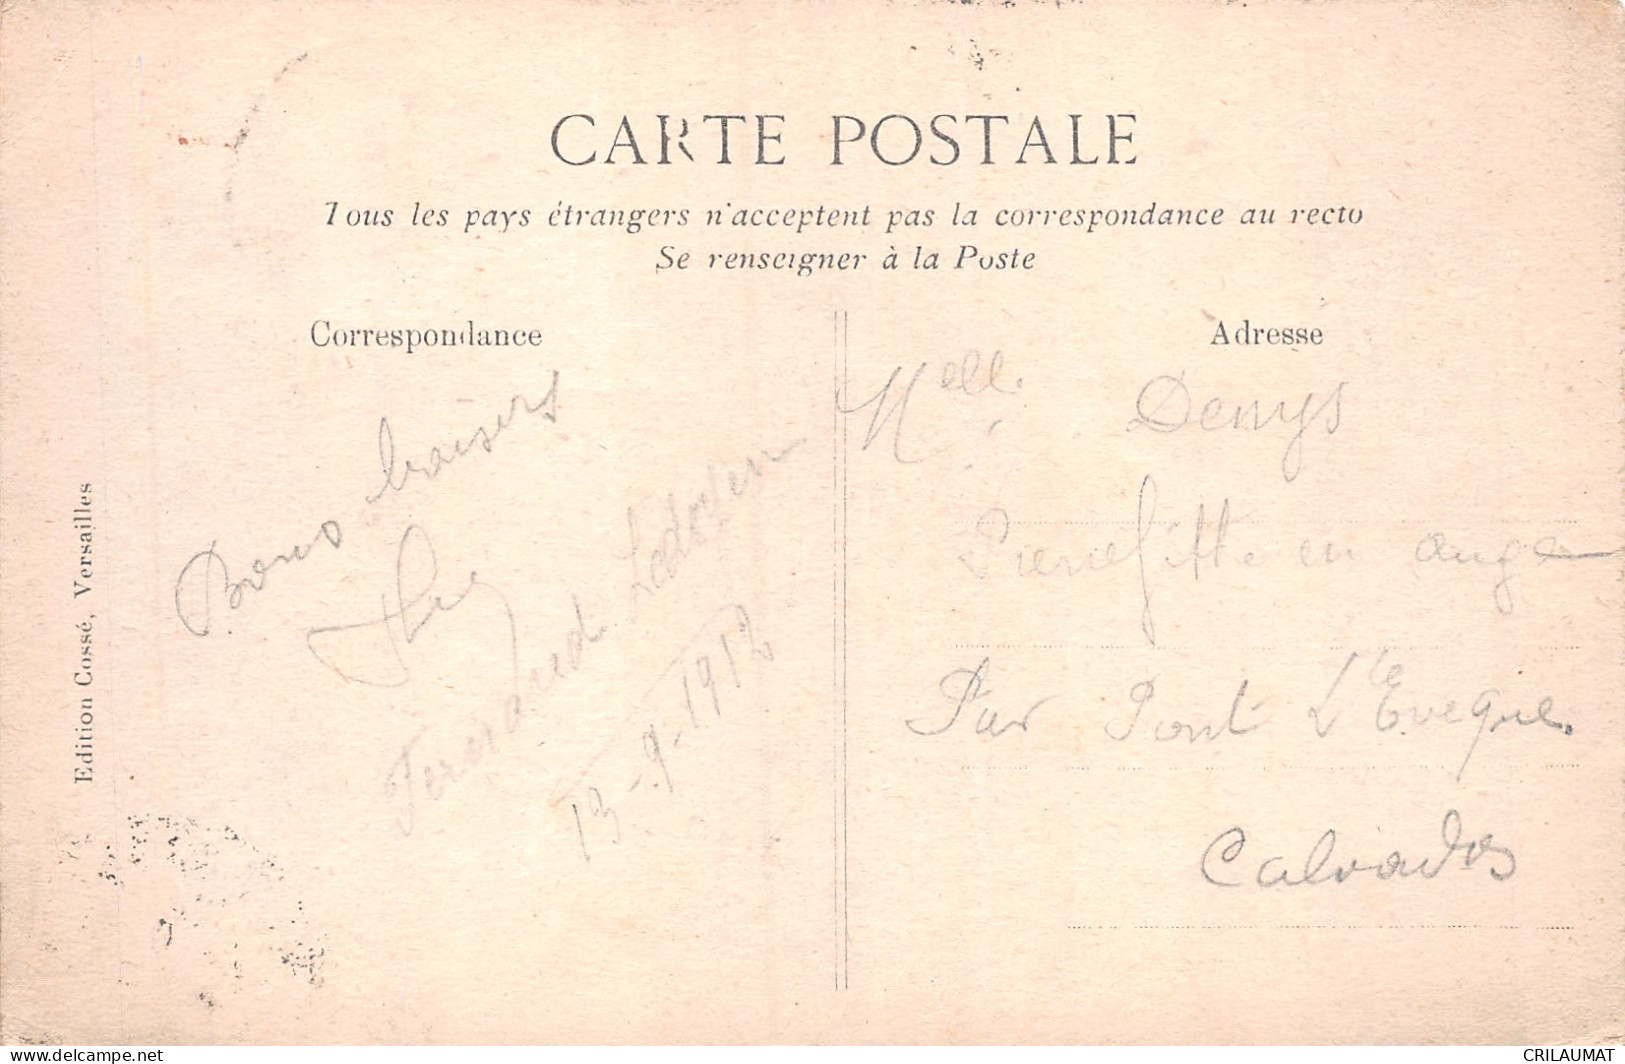 CARTE POSTALE
Tous les pays étrangers n'acceptent pas la correspondance au recto
Se renseigner à la Poste
Correspondance
Bons baisers
Fernand Ledoyen
13-9-1912
Adresse
Melle. Denys
Pierrefitte en auge
Par Pont L'Eveque
Calvados
Edition Cossé, Versailles
delcampe.net
CRILAUMAT